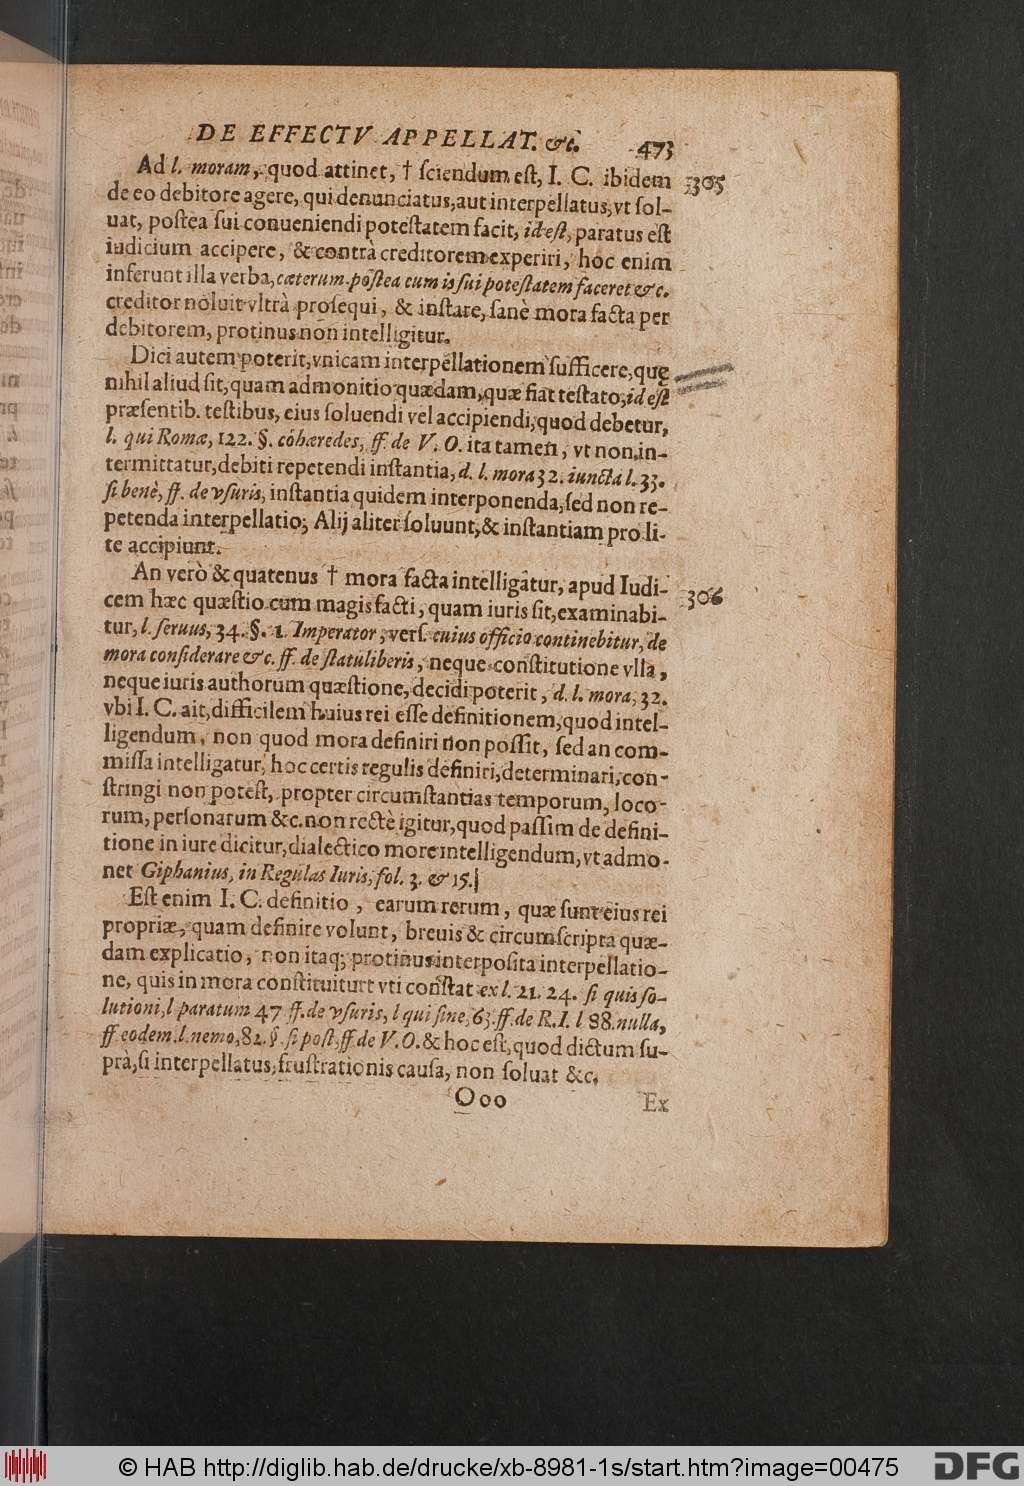 DE EFFECTV APPELLAT. &c. 473
Ad l. moram, quod attinet, † ſciendum eſt, I. C. ibidem 305
de eo debitore agere, qui denunciatus, aut interpellatus, vt ſol-
uat, poſtea ſui conueniendi poteſtatem facit, id eſt, paratus eſt
iudicium accipere, & contrà creditorem experiri, hoc enim
inferunt illa verba, cæterum poſtea cum is ſui poteſtatem faceret &c.
creditor noluit vltrà proſequi, & inſtare, ſanè mora facta per
debitorem, protinus non intelligitur.
Dici autem poterit, vnicam interpellationem ſufficere, quę
nihil aliud ſit, quam admonitio quædam, quæ fiat teſtato, id eſt
præſentib. teſtibus, eius ſoluendi vel accipiendi, quod debetur,
l. qui Romæ, 122. §. cohæredes, ff. de V. O. ita tamen, vt non in-
termittatur, debiti repetendi inſtantia, d. l. mora 32. iuncta l. 33.
ſi benè, ff. de vſuris, inſtantia quidem interponenda, ſed non re-
petenda interpellatio; Alij aliter ſoluunt, & inſtantiam pro li-
te accipiunt.
An verò & quatenus † mora facta intelligatur, apud Iudi- 306
cem hæc quæſtio cum magis facti, quam iuris ſit, examinabi-
tur, l. ſeruus, 34. §. 1. Imperator, verſ. cuius officio continebitur, de
mora conſiderare &c. ff. de ſtatuliberis, neque conſtitutione vlla,
neque iuris authorum quæſtione, decidi poterit, d. l. mora, 32.
vbi I. C. ait, difficilem huius rei eſſe definitionem, quod intel-
ligendum, non quod mora definiri non poſſit, ſed an com-
miſſa intelligatur, hoc certis regulis definiri, determinari, con-
ſtringi non poteſt, propter circumſtantias temporum, loco-
rum, perſonarum &c. non rectè igitur, quod paſſim de defini-
tione in iure dicitur, dialectico more intelligendum, vt admo-
net Giphanius, in Regulas Iuris, fol. 3. & 15.
Eſt enim I. C. definitio, earum rerum, quæ ſunt eius rei
propriæ, quam definire volunt, breuis & circumſcripta quæ-
dam explicatio, non itaq; protinus interpoſita interpellatio-
ne, quis in mora conſtituitur vti conſtat ex l. 21. 24. ſi quis ſo-
lutioni, l paratum 47 ff. de vſuris, l qui ſine, 63. ff. de R. I. l 88. nulla,
ff. eodem. l. nemo, 82. §. ſi poſt, ff. de V. O. & hoc eſt, quod dictum ſu-
prà, ſi interpellatus, fruſtrationis cauſa, non ſoluat &c.
Ooo Ex
© HAB http://diglib.hab.de/drucke/xb-8981-1s/start.htm?image=00475 DFG